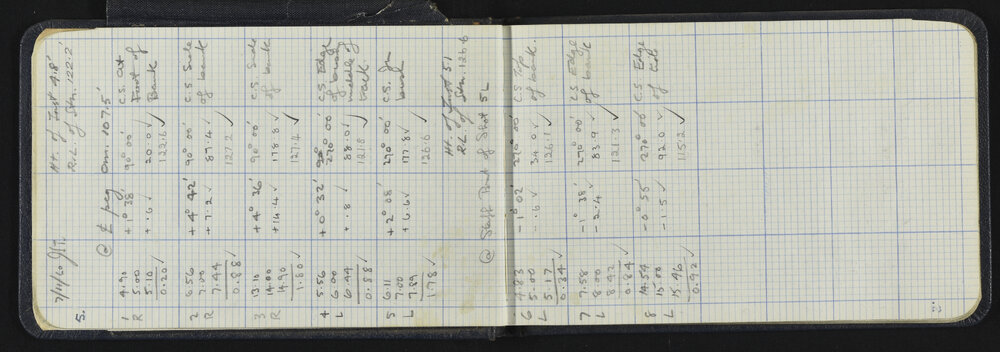 7/11/60 Ht. of Inst 4.8'
5. R.L. of Stn. 122.2'
@ ₵ peg Om. 107.5'
1 4.90 +1° 38' 90° 00' C.S. at
R 5.00 + .6 ✓ 20.0 ✓ Foot of
5.10 122.6 ✓ Bank
0.20 ✓
2 6.56 +4° 42' 90° 00' C.S. Side
R 7.00 +7.2 ✓ 87.4 ✓ of bank
7.44 127.2
0.88 ✓
3 13.10 +4° 36' 90° 00' C.S. Side
R 14.00 +14.4 ✓ 178.8 ✓ of bank
14.90 127.4 ✓
1.80 ✓
4 5.56 +0° 32' 270° 00' C.S. Edge
L 6.00 + .8 ✓ 88.0 ✓ of
6.44 121.8 middle of
0.88 ✓ track
5 6.11 +2° 08' 270° 00' C.S. In
L 7.00 +6.6 ✓ 177.8 ✓ bush
7.89 126.6
1.78 ✓
Ht. of Inst 5.1
R.L. of Stn. 126.6
@ Staff Point of Shot 5L
6 4.83 -1° 02' 270° 00' C.S. Top
L 5.00 - .6 ✓ 34.0 ✓ of bank.
5.17 126.1
0.34 ✓
7 7.58 -1° 38' 270° 00' C.S. Edge
L 8.00 -2.4 ✓ 83.9 ✓ of bank
8.42 121.3 ✓
0.84 ✓
8 14.54 -0° 55' 270° 00' C.S. Edge
L 15.00 -1.5 ✓ 92.0 ✓ of
15.46 115.2 ✓
0.92 ✓